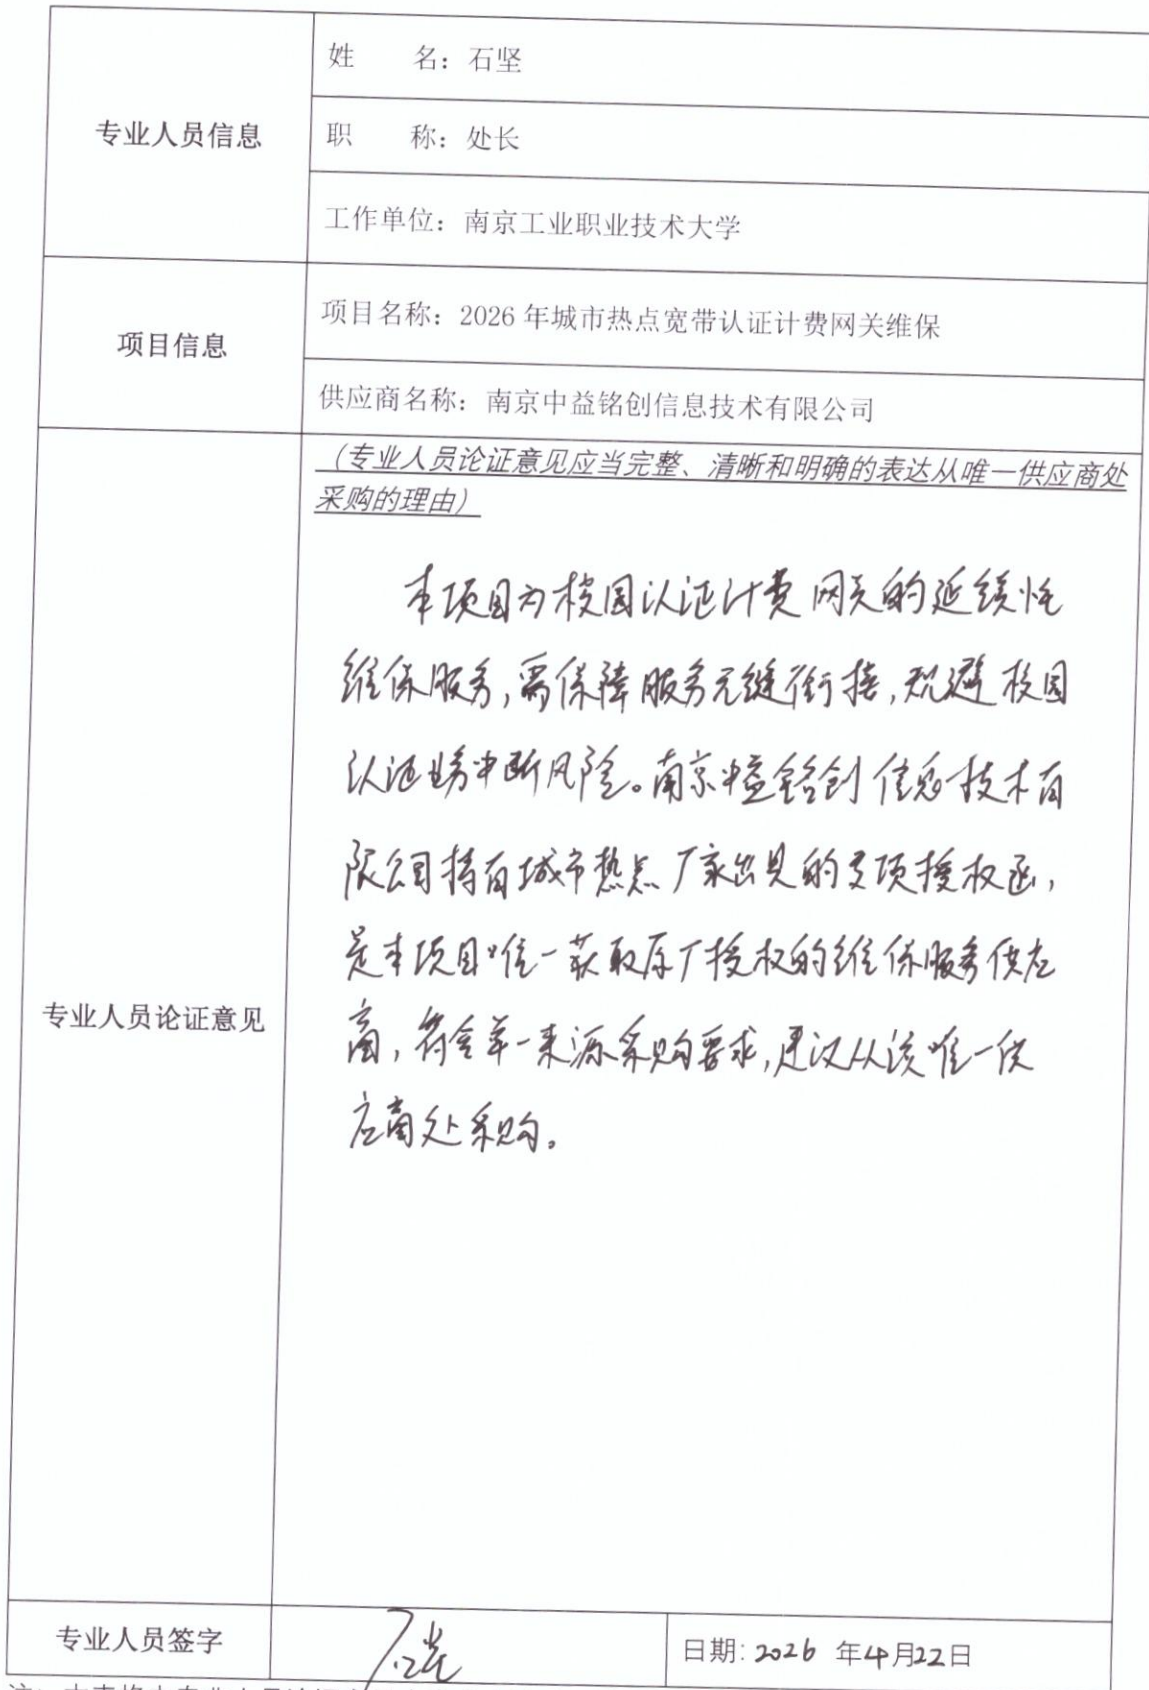 专业人员信息
姓 名：石坚
职 称：处长
工作单位：南京工业职业技术大学
项目信息
项目名称：2026 年城市热点宽带认证计费网关维保
供应商名称：南京中益铭创信息技术有限公司
专业人员论证意见
（专业人员论证意见应当完整、清晰和明确的表达从唯一供应商处
采购的理由）
本项目为校园认证计费网关的延续性
维保服务，需保障服务无缝衔接，规避校园
认证业务中断风险。南京中益铭创信息技术有
限公司持有城市热点厂家出具的专项授权函，
是本项目唯一获取原厂授权的维保服务供应
商，符合单一来源采购要求，建议从该唯一供
应商处采购。
专业人员签字
石坚
日期：2026 年4月22日